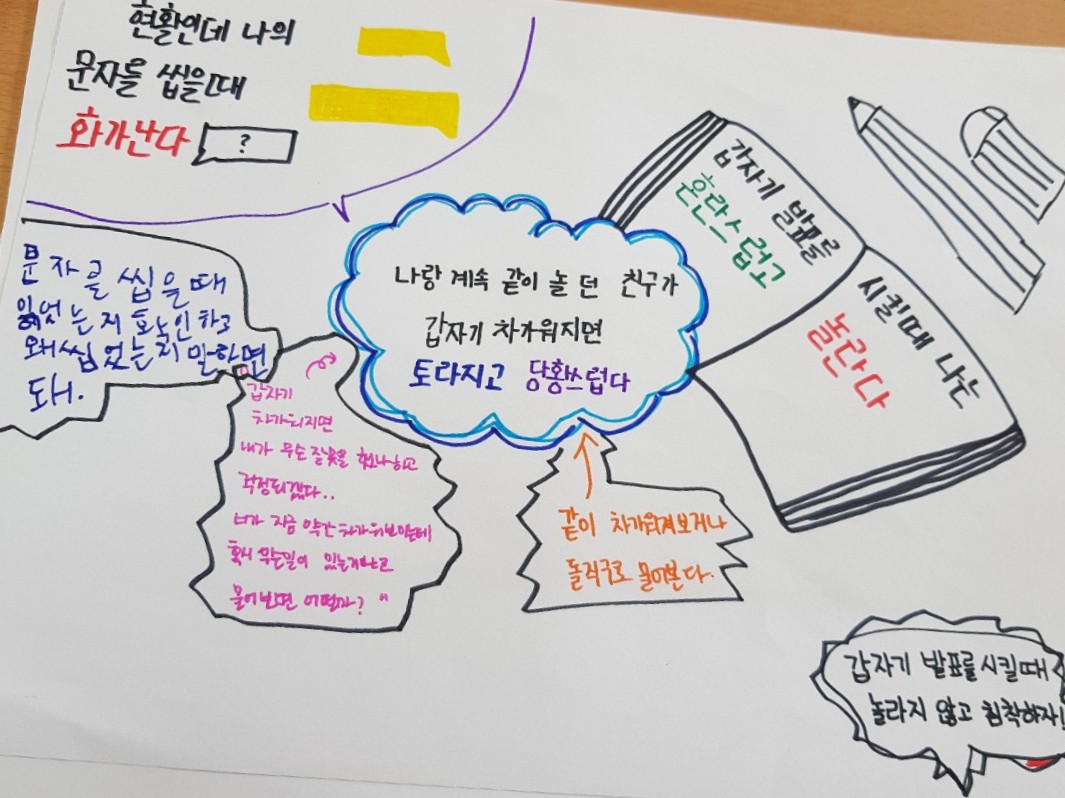 현활인데 나의
문자를 씹을때
화가난다
?
문자를 씹을 때
읽었는지 확인하고
왜 씹었는지 말하면
돼.
나랑 계속 같이 놀 던 친구가
갑자기 차가워지면
토라지고 당황쓰럽다
갑자기 발표를
혼란스럽고
시킬때 나는
놀란다
갑자기
차가워지면
내가 무슨 잘못을 했나하고
걱정되겠다..
너가 지금 약간 차가워보이는데
혹시 무슨일이 있는거냐고
물어보면 어떨까? "
같이 차가워져보거나
돌직구로 물어본다.
갑자기 발표를 시킬때
놀라지 않고 침착하자!